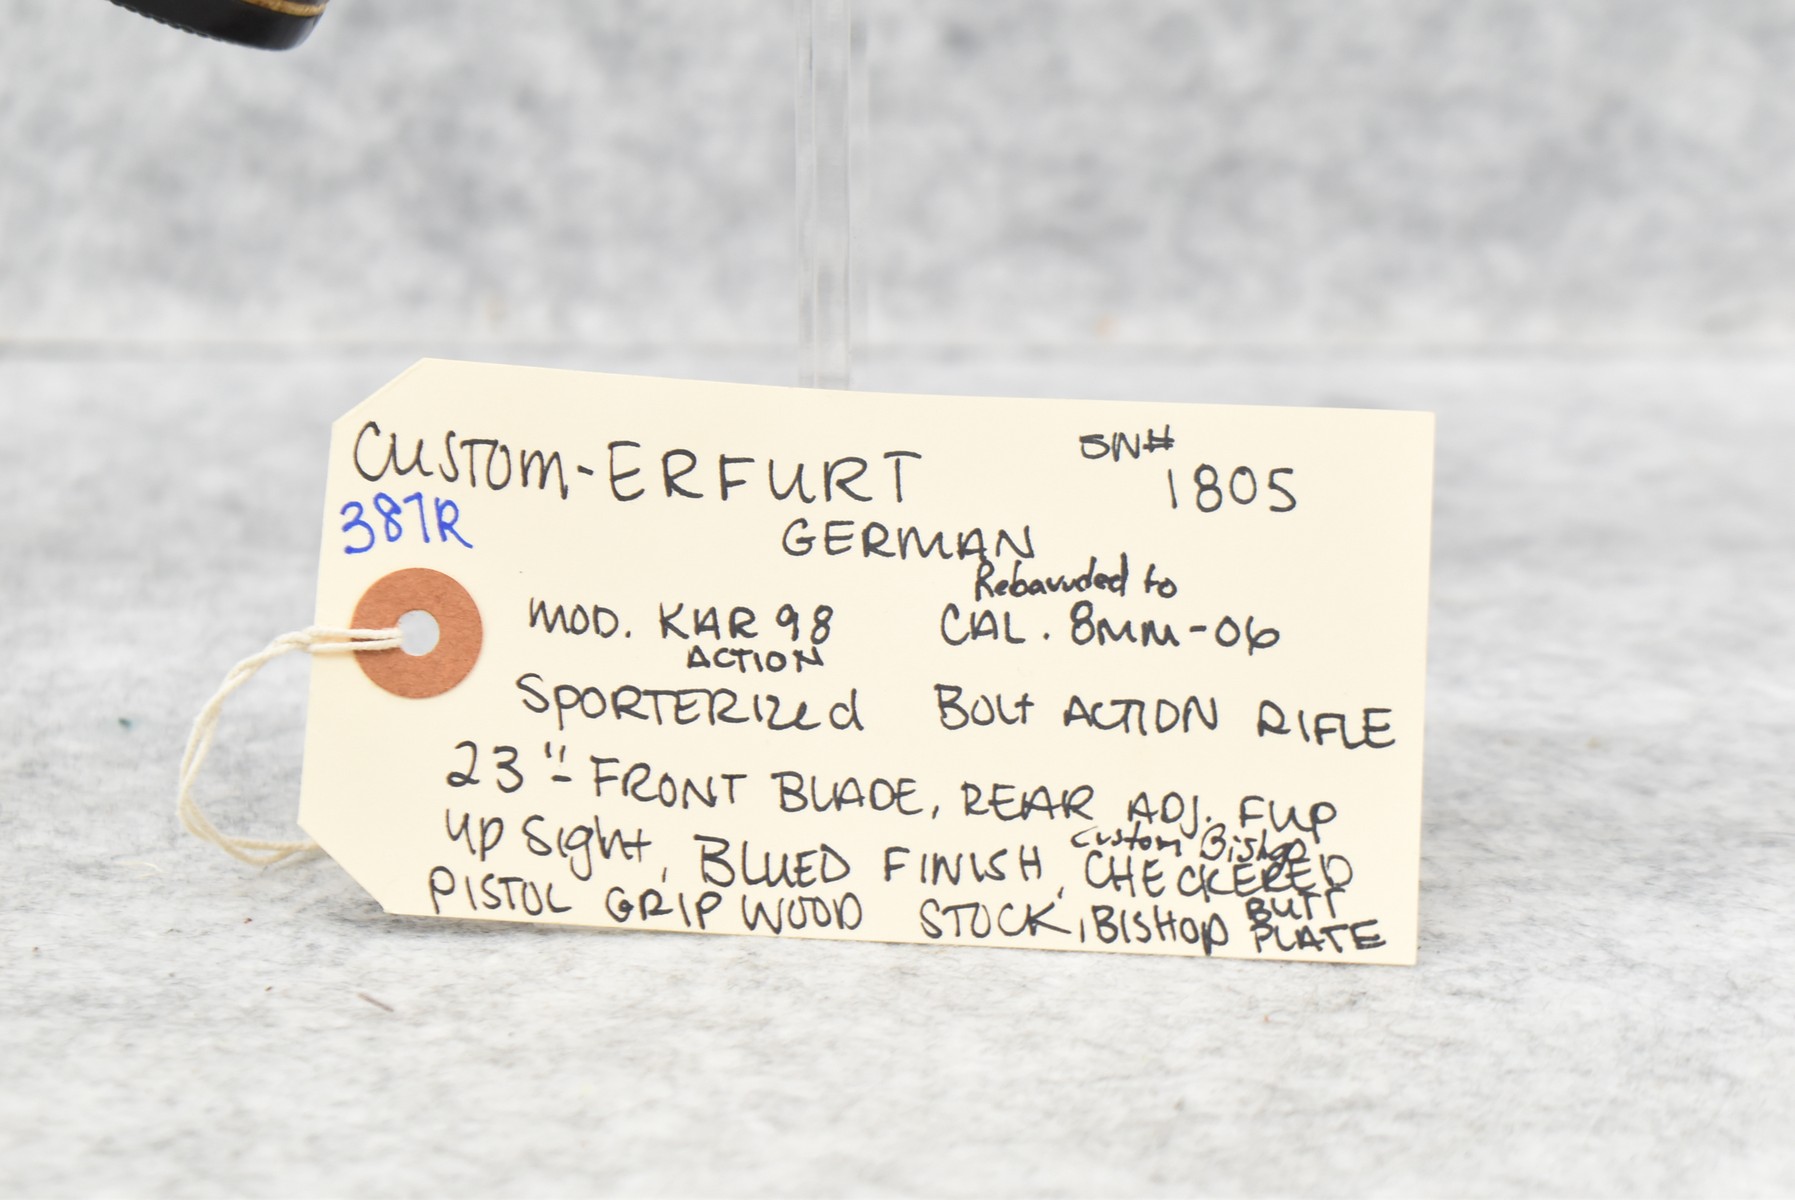 CUSTOM-ERFURT SN#
1805
387R
GERMAN
Rebarreled to
MOD. KAR 98 CAL. 8MM-06
ACTION
SPORTERIZED BOLT ACTION RIFLE
23"- FRONT BLADE, REAR ADJ. FLIP
UP SIGHT, BLUED FINISH, Custom Bishop CHECKERED
PISTOL GRIP WOOD STOCK, BISHOP BUTT PLATE